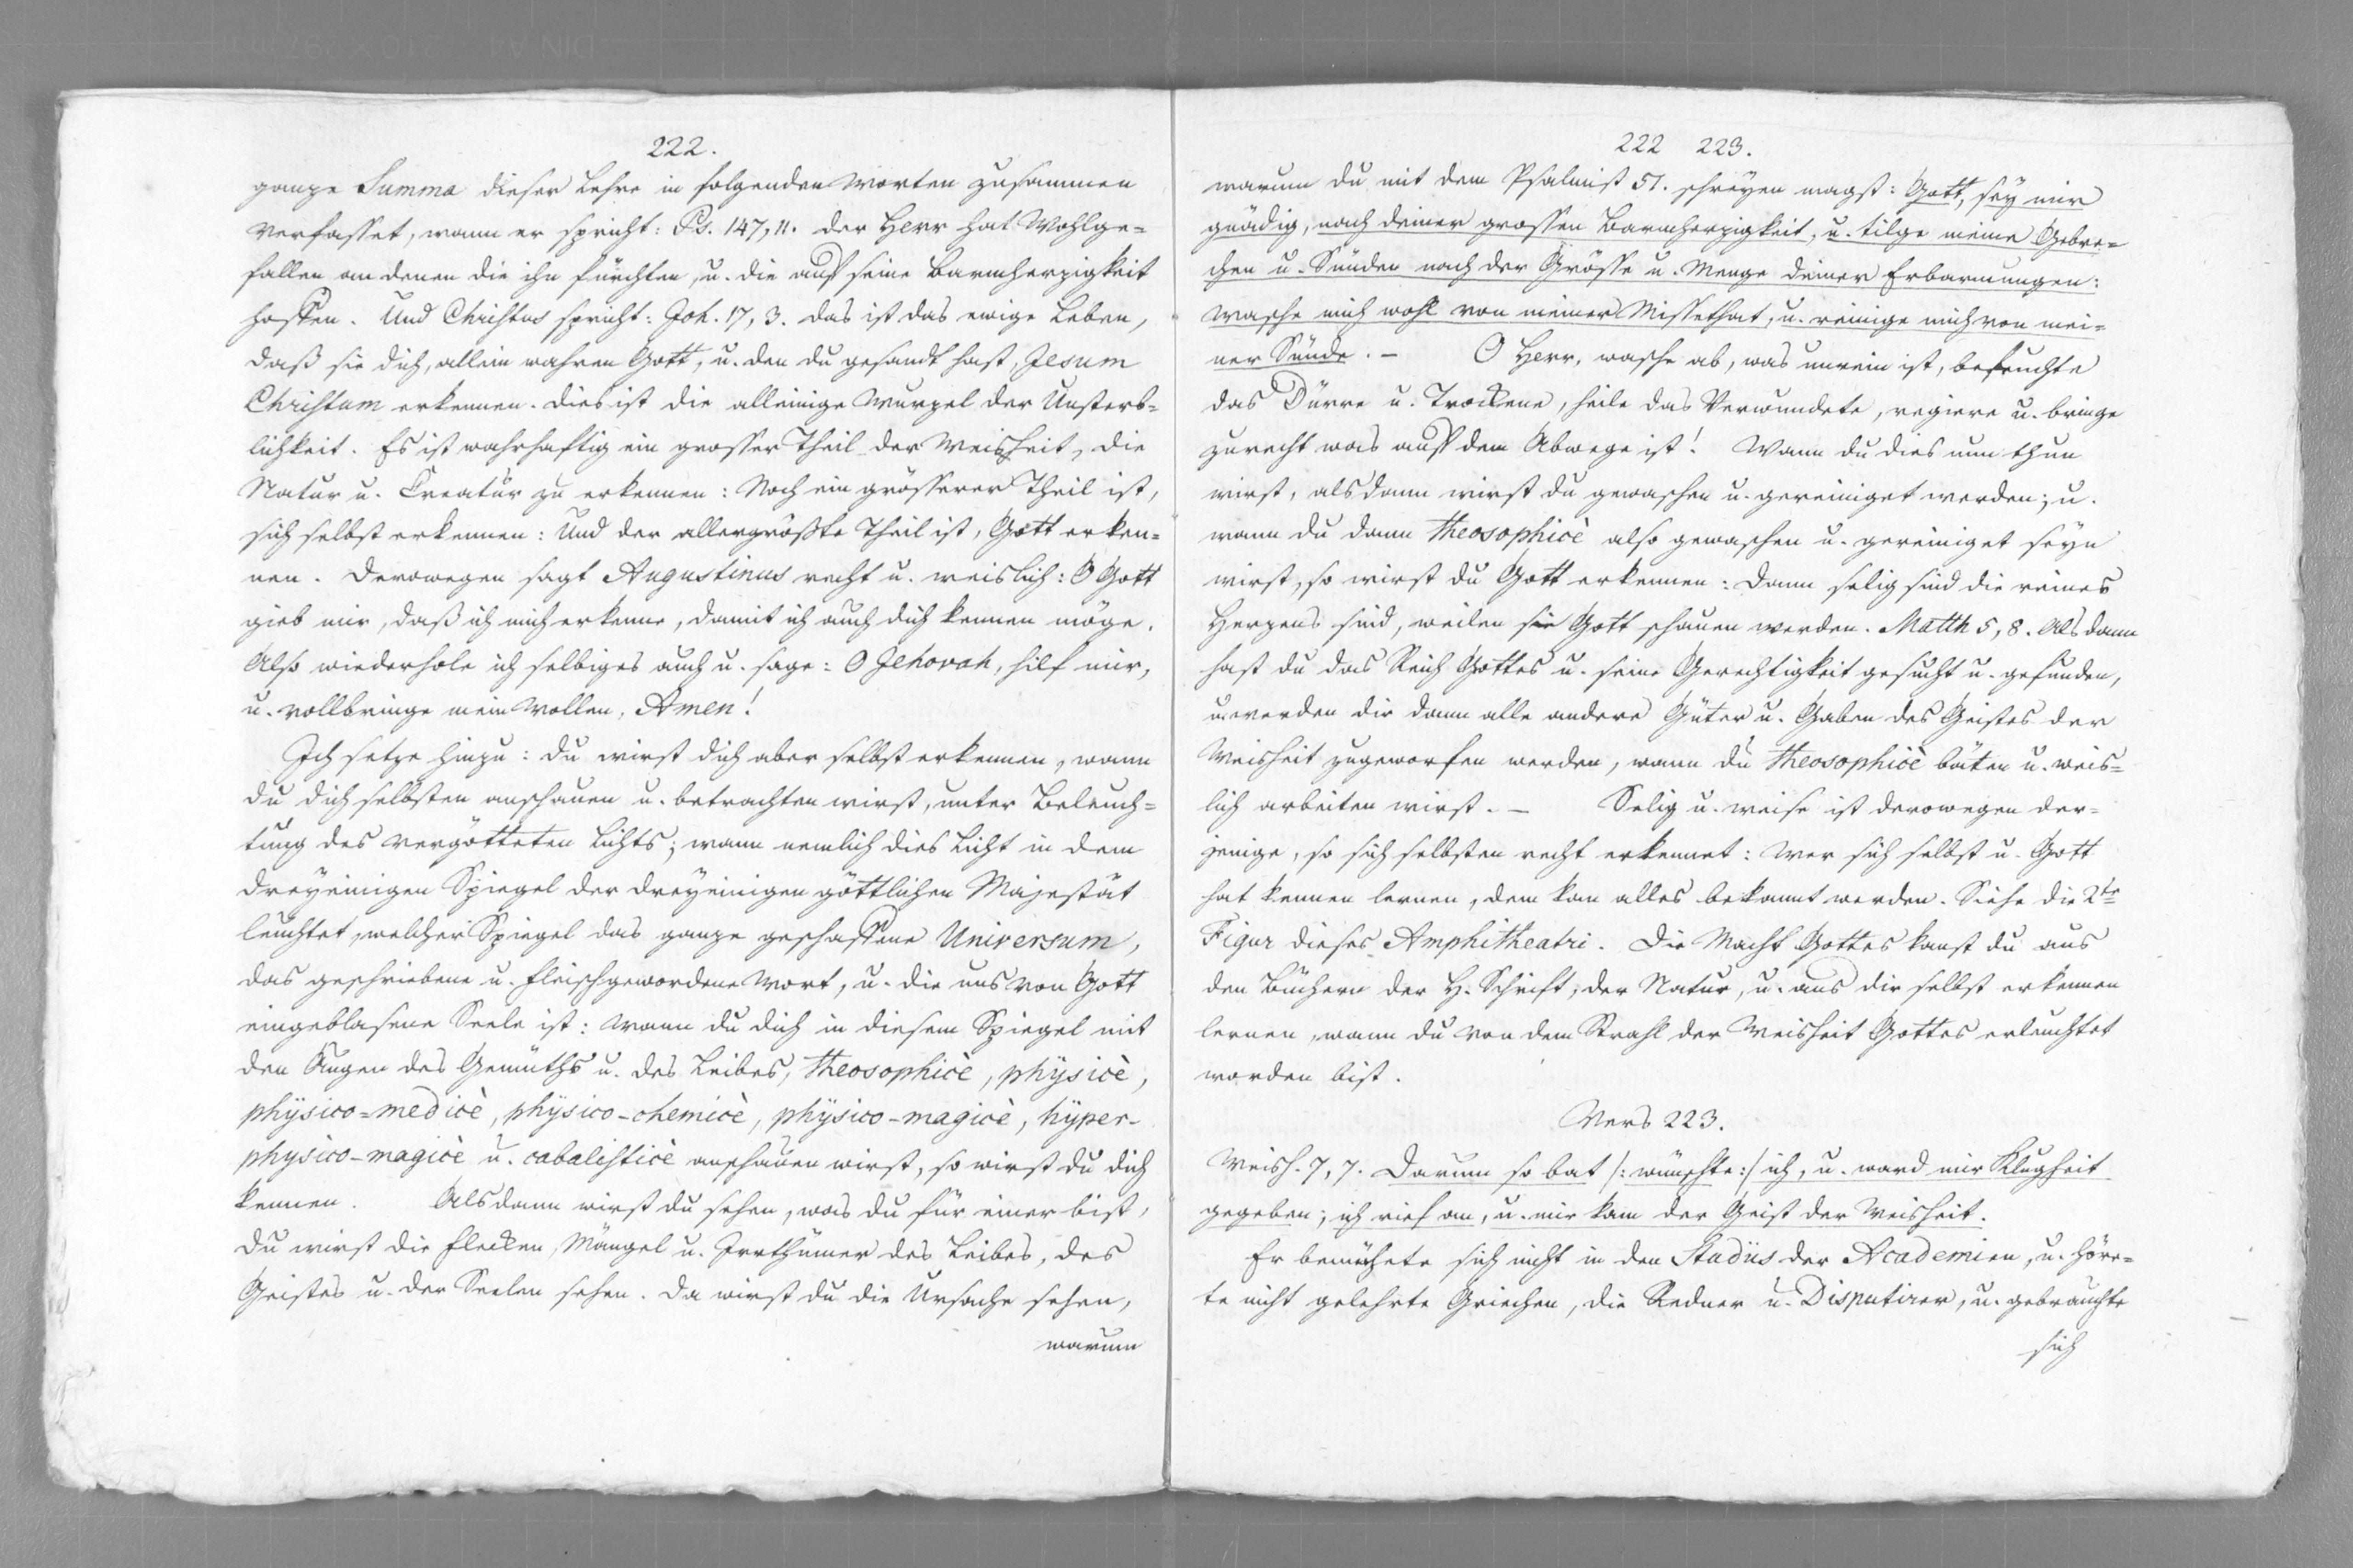 222.
ganze Summa dieser Lehre in folgenden Worten zusammen
verfasset, wann er spricht: Ps. 147, 11. der Herr hat Wohlge=
fallen an denen die ihn fürchten, u. die auf seine Barmherzigkeit
hoffen. Und Christus spricht: Joh. 17, 3. das ist das ewige Leben,
daß sie dich, allein wahren Gott, u. den du gesandt hast, Jesum
Christum erkennen. dies ist die alleinige Wurzel der Unsterb=
lichkeit. Es ist wahrhaftig ein grosser Theil der Weisheit, die
Natur u. Creatur zu erkennen: Noch ein grösserer Theil ist,
sich selbst erkennen: Und der allergrößte Theil ist, Gott erken=
nen. derowegen sagt Augustinus recht u. weislich: O Gott
gieb mir, daß ich mich erkenne, damit ich auch dich kennen möge.
Also wiederhole ich selbiges auch u. sage: O Jehovah, hilf mir,
u. vollbringe mein Wollen, Amen!
Ich setze hinzu: du wirst dich aber selbst erkennen, wann
du dich selbsten anschauen u. betrachten wirst, unter Beleuch=
tung des vergötteten Lichts; wann nemlich dies Licht in dem
dreyeinigen Spiegel der dreyeinigen göttlichen Majestät
leuchtet, welcher Spiegel das ganze geschaffene Universum,
das geschriebene u. fleischgewordene Wort, u. die uns von Gott
eingeblasene Seele ist: wann du dich in diesem Spiegel mit
den Augen des Gemüths u. des Leibes, theosophicè, physicè,
physico=medicè, physico-chemicè, physico-magicè, hyper-
physico-magicè u. cabalisticè anschauen wirst, so wirst du dich
kennen. Alsdann wirst du sehen, was du für einer bist,
du wirst die Flecken, Mängel u. Irrthümer des Leibes, des
Geistes u. der Seelen sehen. da wirst du die Ursache sehen,
warum
222 223.
warum du mit dem Psalmist 51. schreyen magst: Gott, sey mir
gnädig, nach deiner grossen Barmherzigkeit, u. tilge meine Gebre=
chen u. Sünden nach der Grösse u. Menge deiner Erbarmungen:
wasche mich wohl von meiner Missethat, u. reinige mich von mei=
ner Sünde. – O Herr, wasche ab, was unrein ist, befeuchte
das Dürre u. Trockene, heile das Verwundete, regiere u. bringe
zurecht was auf dem Abwege ist! Wann du dies nun thun
wirst, alsdann wirst du gewaschen u. gereiniget werden; u.
wann du dann theosophicè also gewaschen u. gereiniget seyn
wirst, so wirst du Gott erkennen: dann selig sind die reines
Herzens sind, weilen sie Gott schauen werden. Matth 5, 8. Alsdann
hast du das Reich Gottes u. seine Gerechtigkeit gesucht u. gefunden,
u. werden dir dann alle andere Güter u. Gaben des Geistes der
Weisheit zugeworfen werden, wann du theosophicè bäten u. weis=
lich arbeiten wirst. – Selig u. weise ist derowegen der=
jenige, so sich selbsten recht erkennet: wer sich selbst u. Gott
hat kennen lernen, dem kan alles bekannt werden. Siehe die 2te
Figur dieses Amphitheatri. Die Macht Gottes kanst du aus
den Büchern der H. Schrift, der Natur, u. aus dir selbst erkennen
lernen, wann du von dem Strahl der Weisheit Gottes erleuchtet
worden bist.
Vers 223.
Weish. 7, 7. Darum so bat /: wünschte :/ ich, u. ward mir Klugheit
gegeben; ich rief an, u. mir kam der Geist der Weisheit.
Er bemühete sich nicht in den Studiis der Academien, u. höre=
te nicht gelehrte Griechen, die Redner u. Disputirer, u. gebrauchte
sich